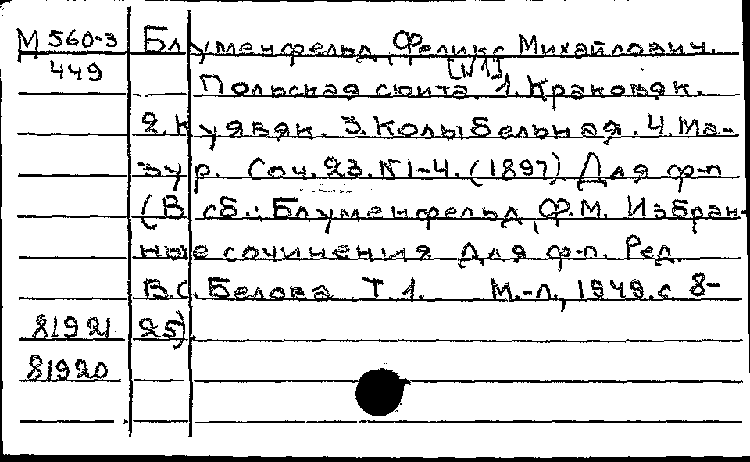 М 560-3 Блуменфельд, Феликс Михайлович.
449 [N 1]
Польская сюита. 1. Краковяк.
2. Куявяк. 3. Колыбельная. 4. Ма-
зур. Соч. 23. N 1-4. (1897). Для ф-п
(В сб.: Блуменфельд, Ф.М. Избран-
ные сочинения для ф-п. Ред.
В.С. Белова. Т. 1. М.-Л., 1949. с 8-
81921 25).
81920